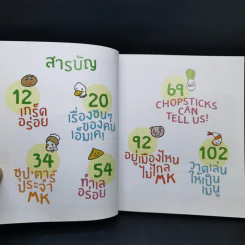 สารบัญ
12
เกร็ด
อร่อย
20
เรื่องซนๆ
ของคน
เอ็มเค!
34
ซุป'ตาร์
ประจำ
MK
54
ทำเล
อร่อย
69
CHOPSTICKS
CAN
TELL US!
92
อยู่เมืองไหน
ไม่ไกล
MK
102
วาดเล่น
ให้เป็น
เมนู